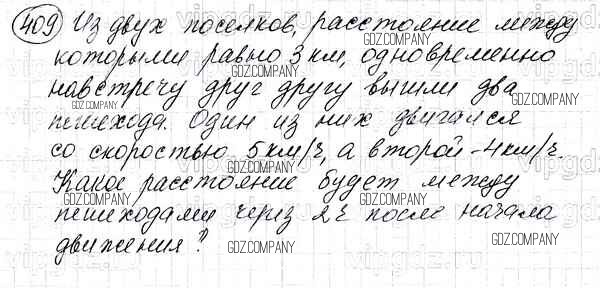 409 Из двух поселков, расстояние между
которыми равно 3 км, одновременно
навстречу друг другу вышли два
пешехода. Один из них двигался
со скоростью 5 км/ч, а второй - 4 км/ч.
Какое расстояние будет между
пешеходами через 2 ч после начала
движения?
GDZ.COMPANY
GDZ.COMPANY
GDZ.COMPANY
GDZ.COMPANY
GDZ.COMPANY
GDZ.COMPANY
GDZ.COMPANY
GDZ.COMPANY
GDZ.COMPANY
GDZ.COMPANY
GDZ.COMPANY